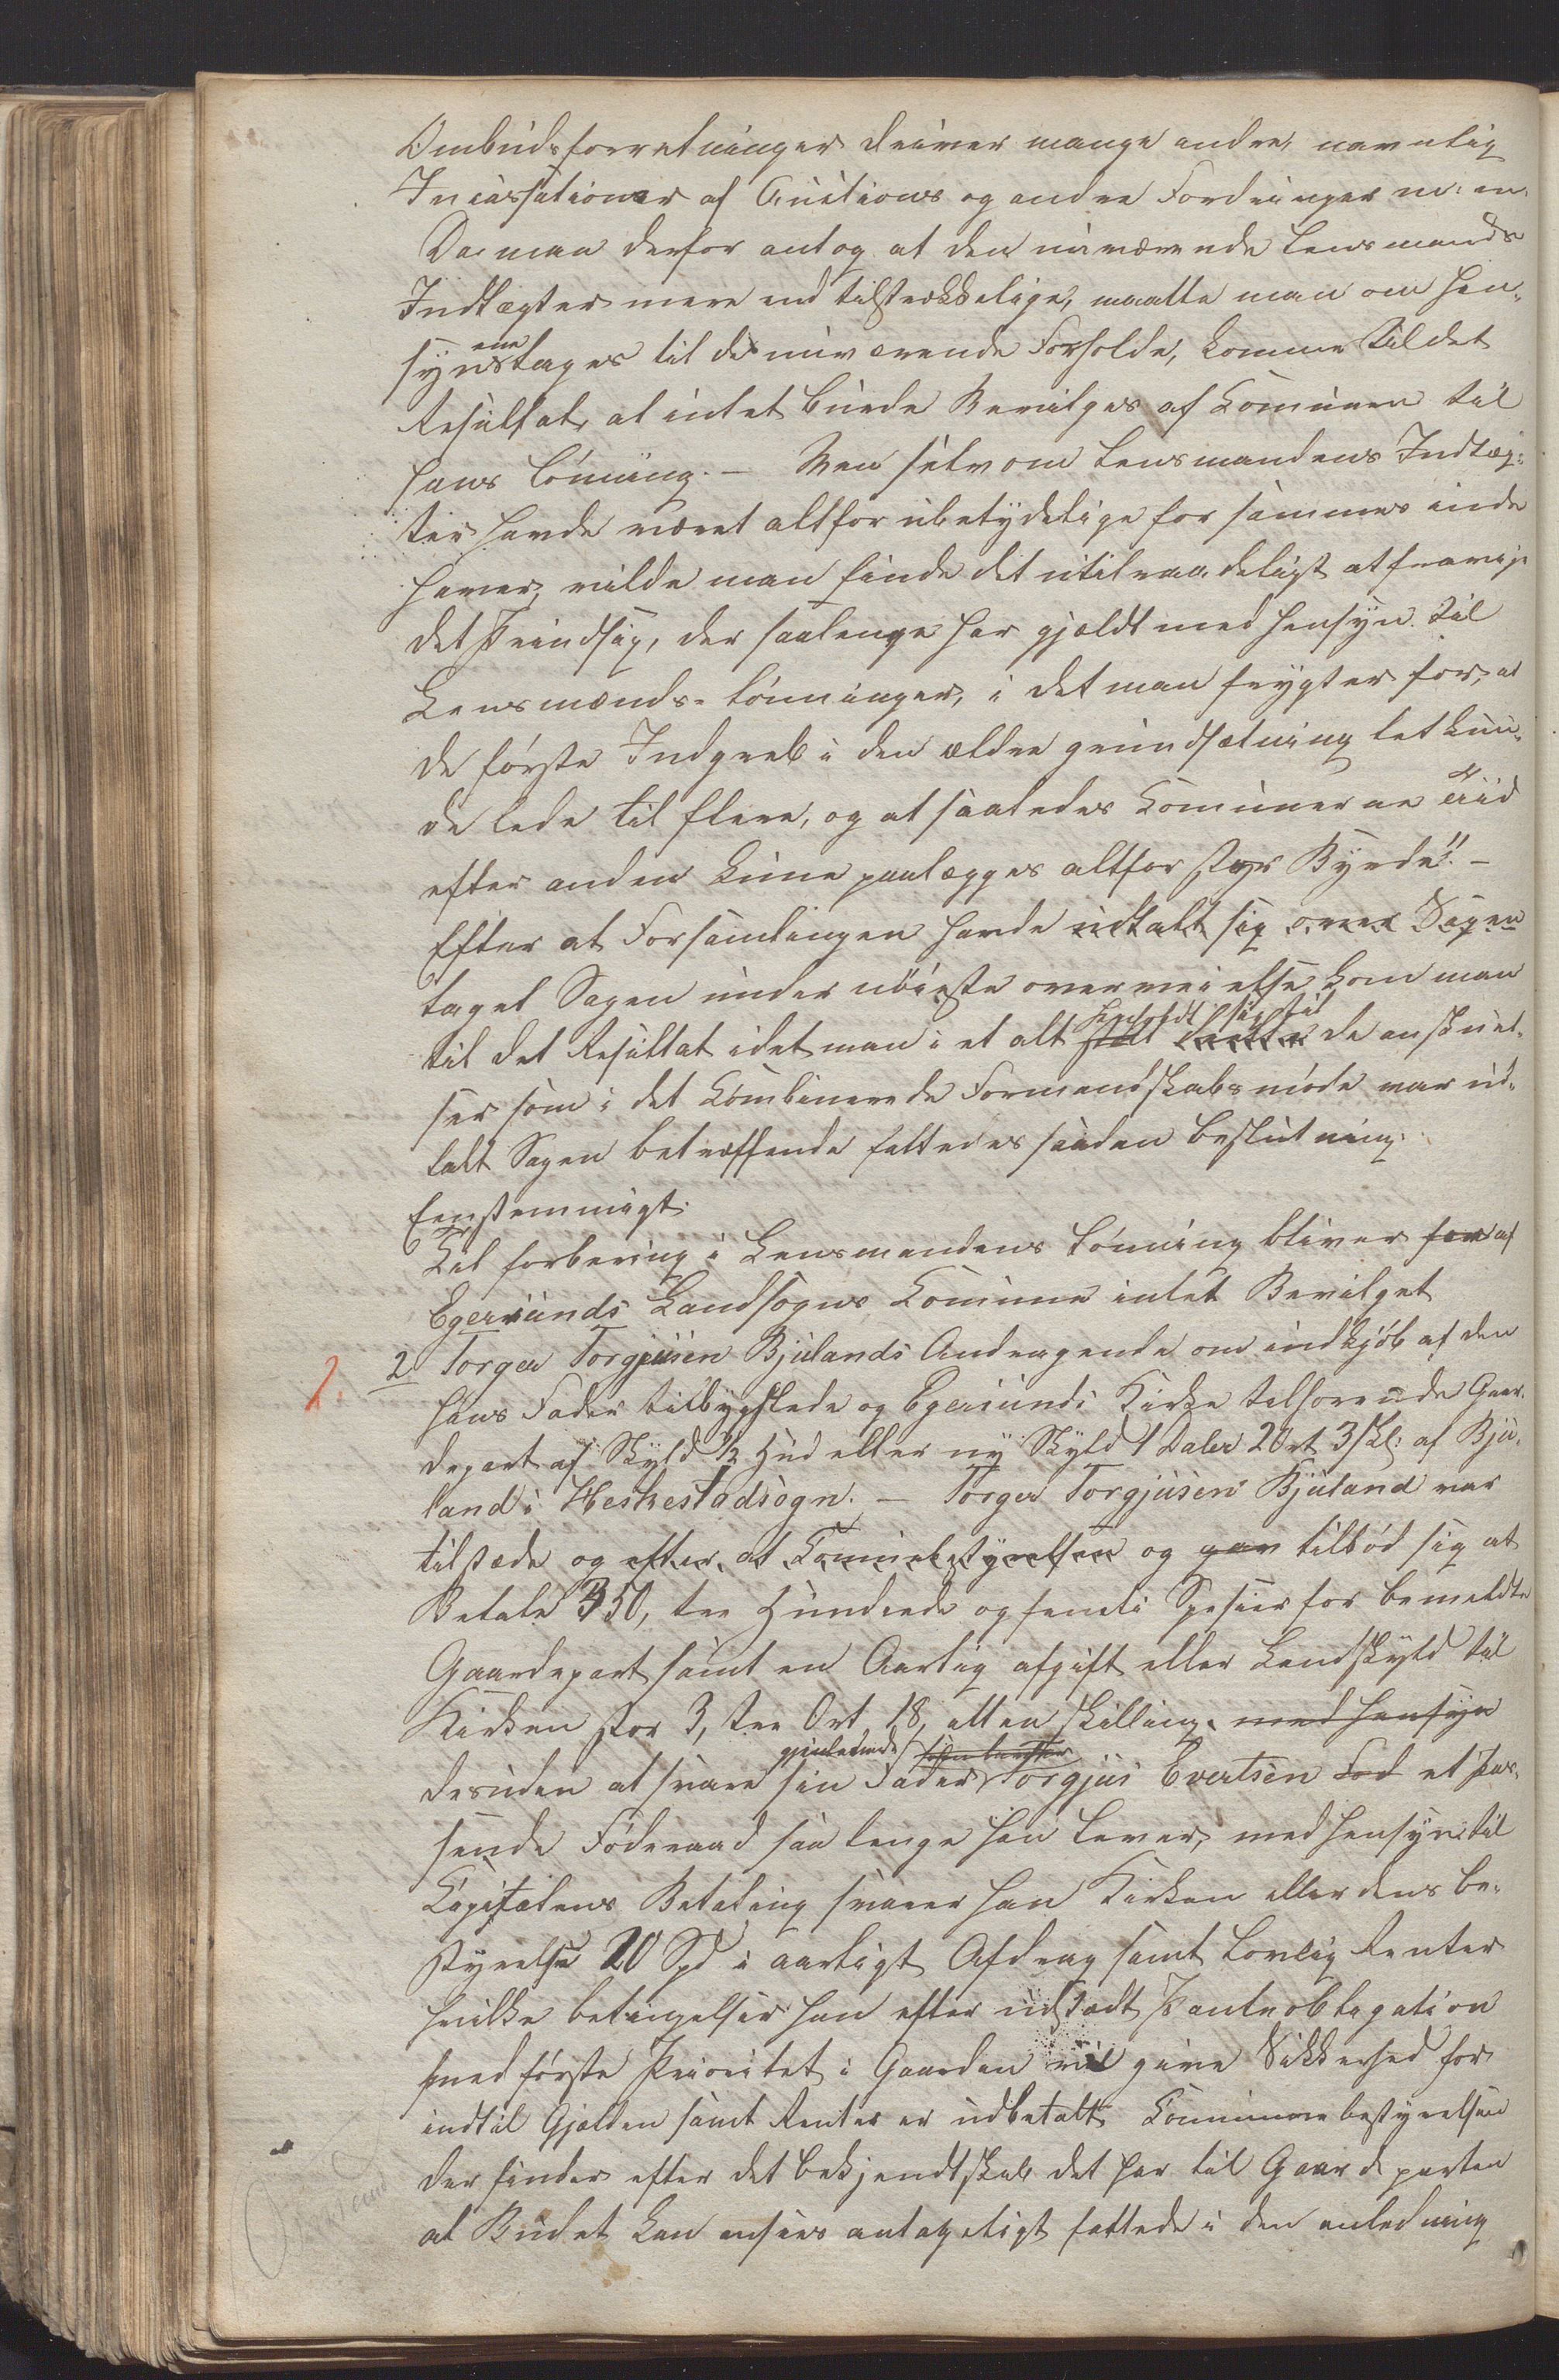 Ombudsforretninger driver mange andre, navnlig
Incassationer af Auctions og andre Fordringer m: m.
Da man derfor antog at den nuværende Lensmands
Indtægter mere end tilstrækkelige, maatte man om hen-
syn ene tages til de nuværende Forholde, komme til det
Resultat, at intet burde Bevilges af Comunen til
hans lønning. – Men selv om Lensmandens Indtæg-
ter havde været altfor ubetydelige for sammes inde
haver, vilde man finde det utilraadeligt at fravige
det Prindsip, der saalenge har gjældt med hensyn til
Lensmænds-lønninger, i det man frygter for, at
de første Indgreb i den ældre grundsætning let kun-
de lede til flere, og at saaledes Comunerne Tiid
efter anden kune paalægges altfor stor Byrde". –
Efter at Forsamlingen havde udtalt sig over Sagen
taget Sagen under nøieste overveielse kom man
til det Resultat idet man i et alt henholdt sig til de anskuel-
ser som i det Combinerede Formandskabsmøde var ud-
talt Sagen betræffende fattedes saadan beslutning:
Eenstemmigt.
Til forbering i Lensmandens lønning bliver for af
Egersunds Landsogns Comune intet Bevilget
2 Torger Torgjusen Bjulands Andragende om indkjøb af den
hans Fader tilbygslede og Egersunds Kirke tilhørende Gaar-
depart af Skyld ½ Hud eller ny Skyld 1 Daler 2 Ort 3 Skl: af Bju-
land i Heskestadsogn. – Torger Torgjusen Bjuland var
tilstæde og efter at Comunebestyrelsen og gav tilbød sig at
Betale 350, tre Hundrede og femti Spesier for bemeldte
Gaardepart samt en Aarlig afgift eller Landskyld til
Kirken stor 3, tre Ort 18, atten skilling. med hensyn
desuden at svare sin gjenlevende Fader Torgjus Evertsen Fød et pas-
sende Føderaad saa lenge han lever, med hensyn til
Capitalens Betaling svarer han Kirken eller dens be-
styrelse 20 Spd i aarligt Afdrag samt Lovlig Renter
hvilke betingelser han efter udstædt Panteobligation
med første Prioritet i Gaarden vil give Sikkerhed for
indtil Gjælden samt Renter er udbetalt. Comunebestyrelsen
der finder efter det bekjendtskab det har til Gaardparten
at Budet kan ansees antageligt fattede i den anledning